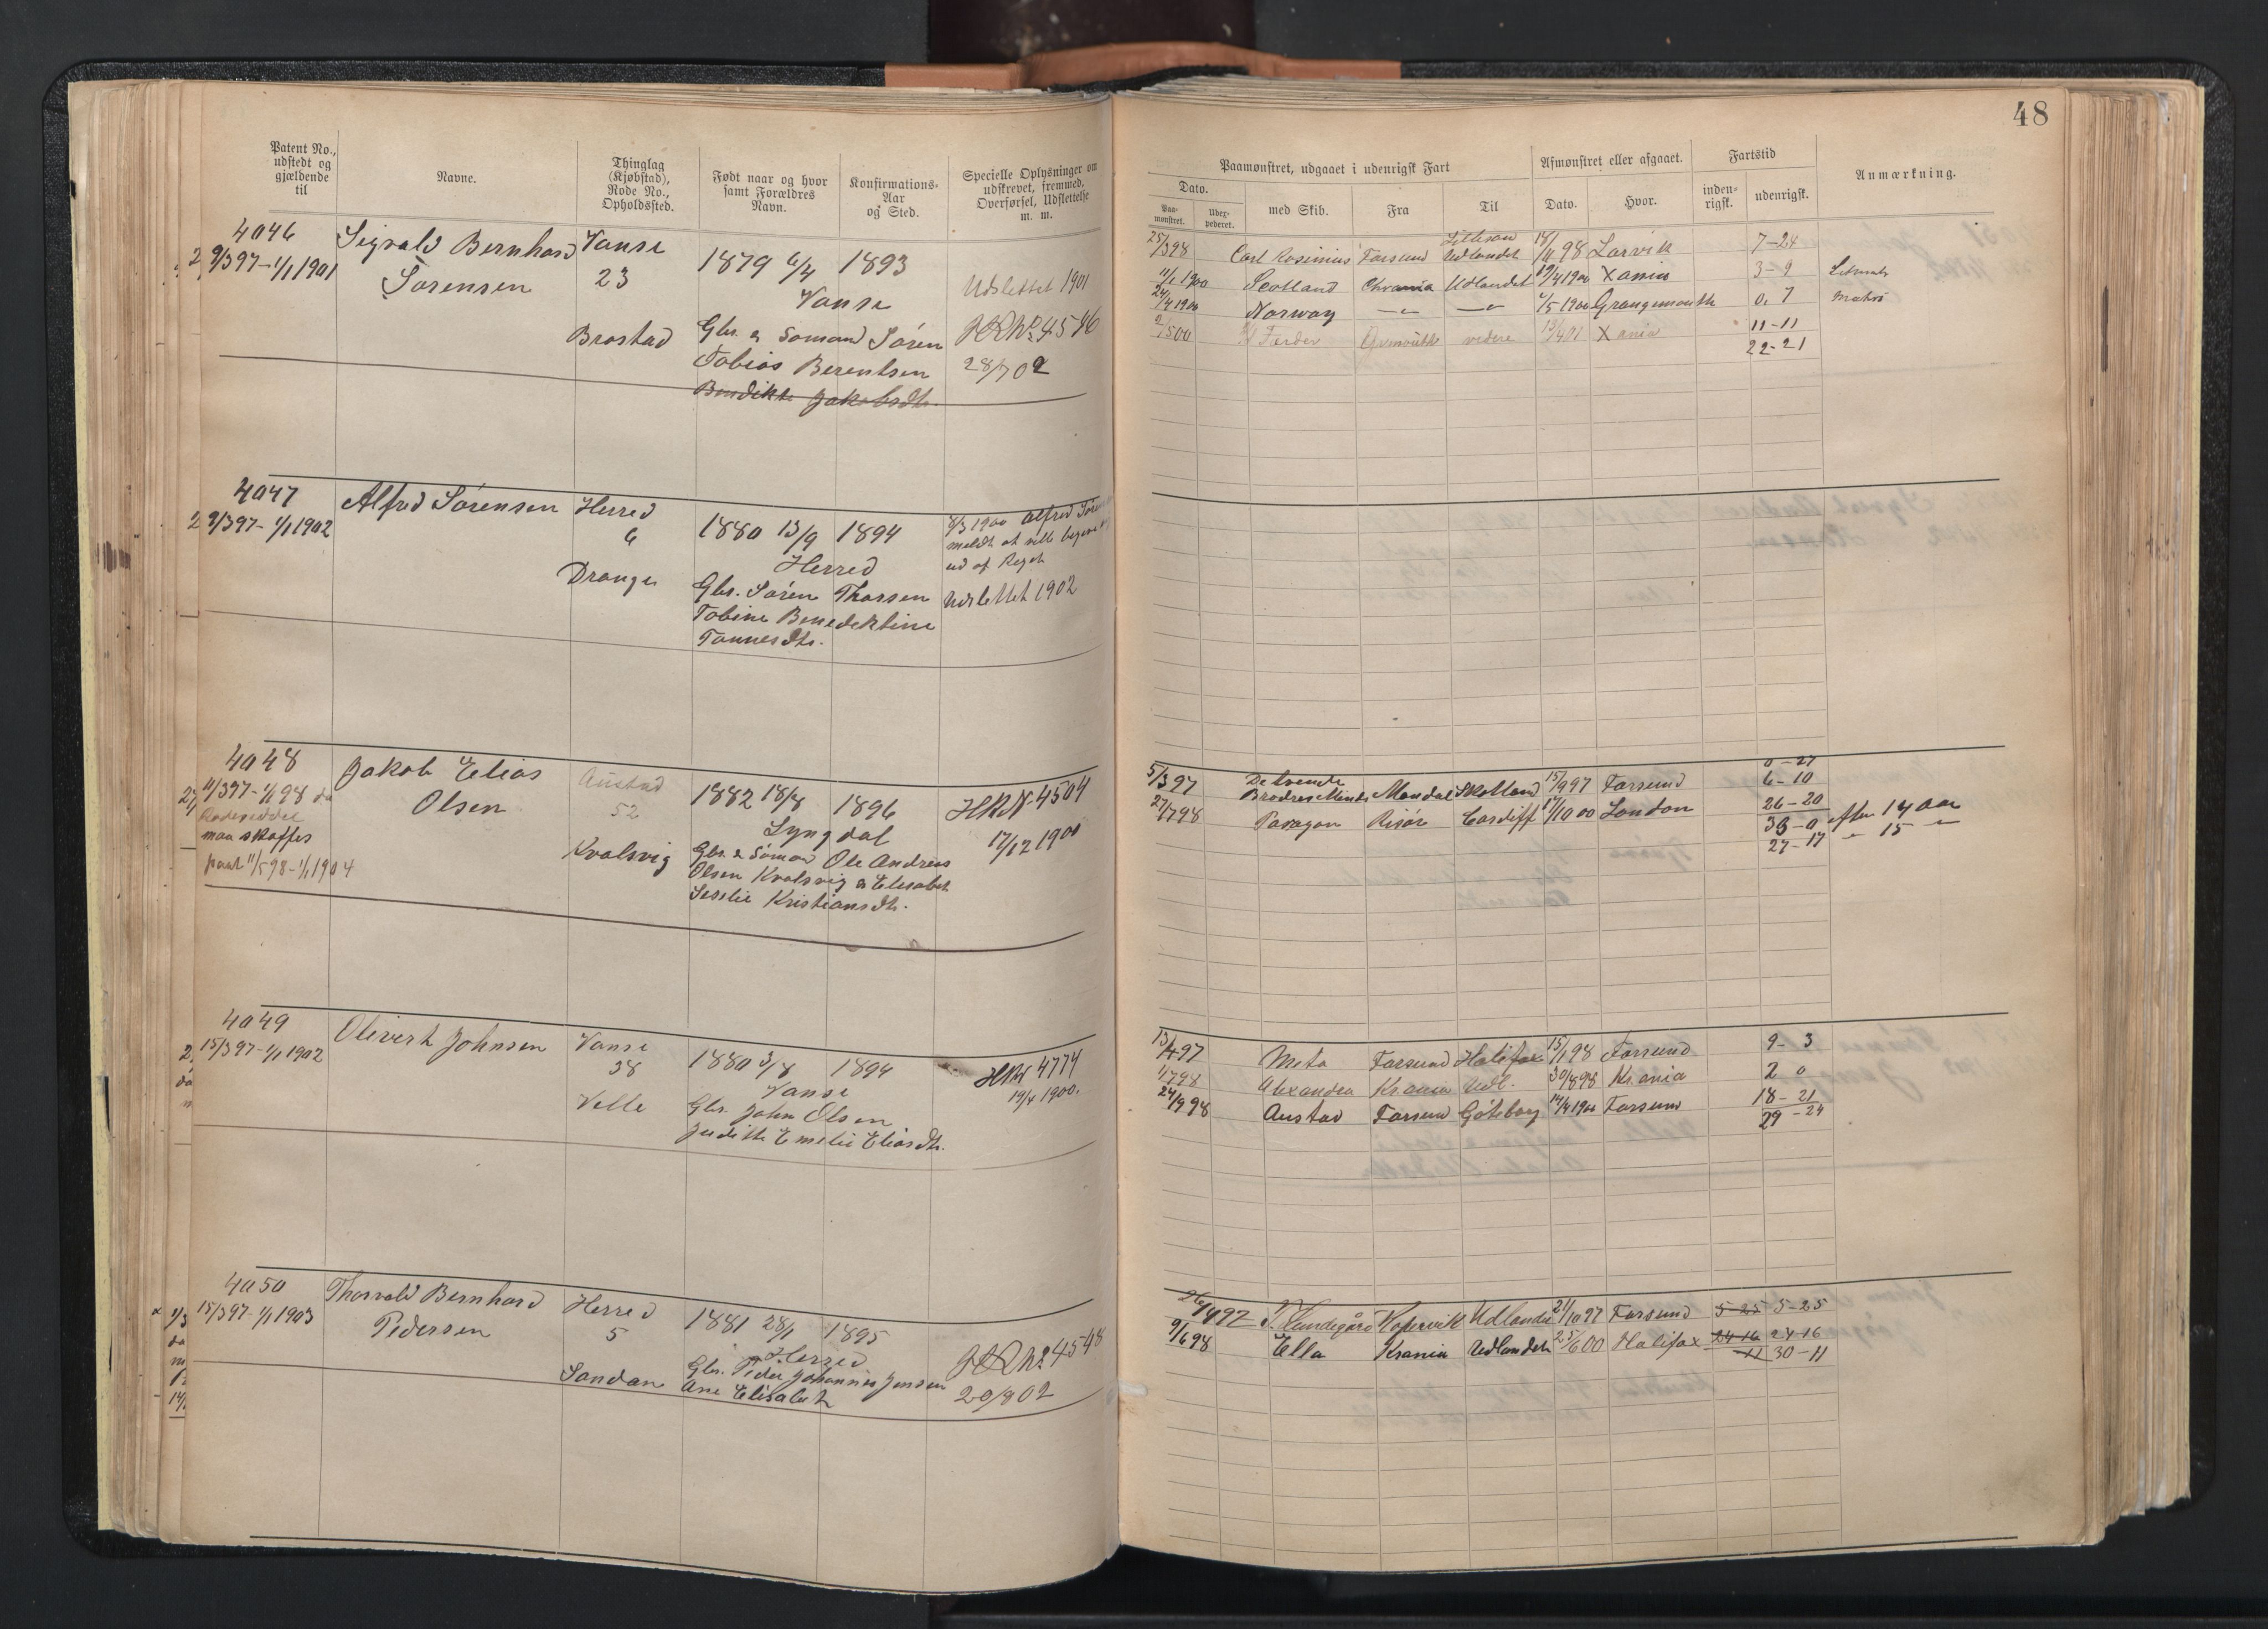 48
Patent No., udstedt og gjældende til
Navne.
Thinglag (Kjøbstad), Rode No., Opholdssted.
Født naar og hvor samt Forældres Navn.
Konfirmations-Aar og Sted.
Specielle Oplysninger om udskrevet, fremmed, Overførsel, Udslettelse m. m.
Paamønstret, udgaaet i udenrigsk Fart
Afmønstret eller afgaaet.
Fartstid
Anmærkning.
Dato.
Paa-mønstret.
Udex-pederet.
med Skib.
Fra
Til
Dato.
Hvor.
inden-rigsk.
udenrigsk.
4046
9/3 97 - 1/1 1901
Sigvald Bernhard
Sørensen
Vanse
23
Brastad
1879 6/4 1893
Vanse
Gbr. & Sømand Søren
Tobias Berentsen
Bendikte Jakobsdtr.
Udslettet 1901
HR No 4546
28/7 02
25/3 98 Carl Rosinius Farsund Udlandet 98 Larvik 7-24
11/1 1900 Scotland Chrania Udlandet 19/4 1900 Xania 3-9
24/4 1900 Norway -"- -"- 1900 Grangemouth 0. 7 Matrs
2/5 00 Færder videre 01 Xania 11-11
22-21
4047
9/3 97 - 1/1 1902
Alfred Sørensen
Herred
6
Drange
1880 13/9 1894
Herred
Gbr. Søren Thorsen
Tobine Benedektine
Tønnesdtr.
8/3 1900 Alfred
meldt at ville begive
ud af Riget
Udslettet 1902
4048
11/3 97 - 1/1 98 da
Rodeseddel
maa skaffes
paat 11/5 98 - 1/1 1904
Jakob Elias
Olsen
Austad
52
Kvalsvig
1882 18/8 1896
Lyngdal
Gbr. & Sømand Ole Andreas
Olsen Kvalsvig & Elisabet
Seselie Kristiansdtr.
HR N. 4504
17/12 1900
0-27
5/3 97 De tvende
Brødres Minde Mandal Skotland 15/9 97 Farsund 6-10
27/7 98 Paragon Risør Cardiff 17/10 00 London 26-20
33-0 efter 14 aar
27-17 " 15 "
4049
15/3 97 - 1/1 1902
Olivert Johnsen
Vanse
38
Velle
1880 3/8 1894
Vanse
Gbr. John Olsen
Judithe Emelie Eliasdtr.
HRN 4774
19/4 1900.
13/4 97 Meta Farsund Halifax 15/1 98 Farsund 9-3
1/7 98 Alexandra Kr.ania Udl. 30/8 98 Kr.ania 2 0
24/9 98 Austad Farsund Gøteborg 14/4 1900 Farsund 18-21
29-24
4050
15/3 97 - 1/1 1903
Thorvald Bernhard
Pedersen
Herred
5
Sandan
1881 28/1 1895
Herred
Gbr. Peder Johannes Jensen
Ane Elisabet
HR No 4548
29/8 02
26/4 97 Kopervik Udlandet 21/10 97 Farsund 5-25 5-25
9/6 98 Ella Krania Udlandet 25/6 00 Halifax 24-16 24-16
11 30-11